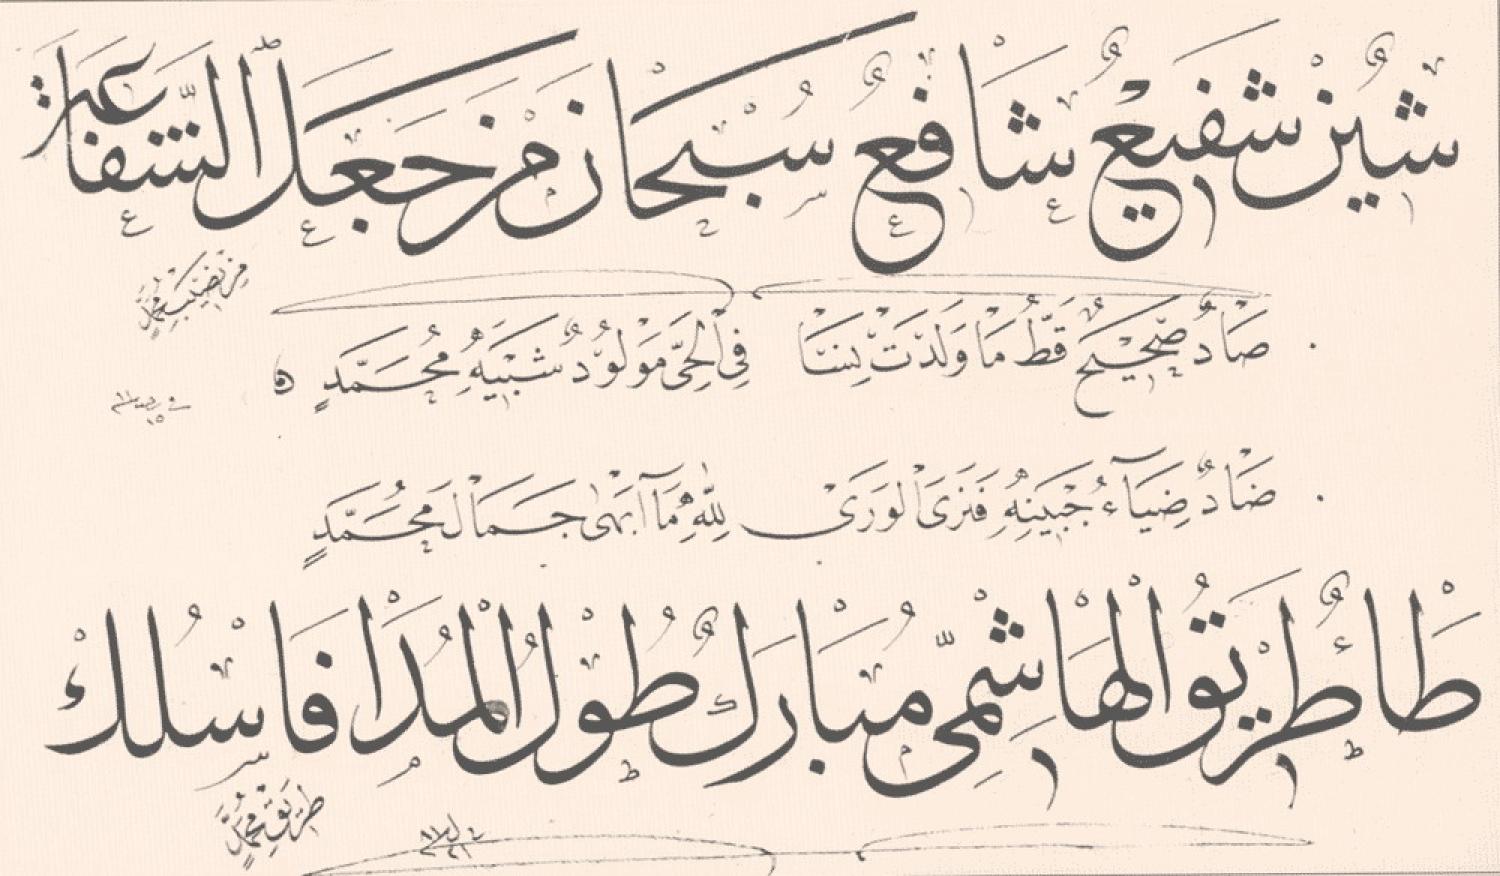 شِينٌ شَفِيعٌ شَافِعٌ سُبْحَانَ مَنْ جَعَلَ الشَّفَاعَةَ
مِنْ نَصِيبِ مُحَمَّدٍ
صَادٌ صَحِيحٌ قَطُّ مَا وَلَدَتْ نِسَا فِي الْحَيِّ مَوْلُودٌ شَبِيهُ مُحَمَّدٍ
ضَادٌ ضِيَاءُ جَبِينِهِ فَتَرَى الْوَرَىٰ لِلّٰهِ مَا أَبْهَىٰ جَمَالَ مُحَمَّدٍ
طَاءٌ طَرِيقُ الْهَاشِمِيِّ مُبَارَكٌ طُولُ الْمُدَا فَاسْلُكْ
طَرِيقَ مُحَمَّدٍ